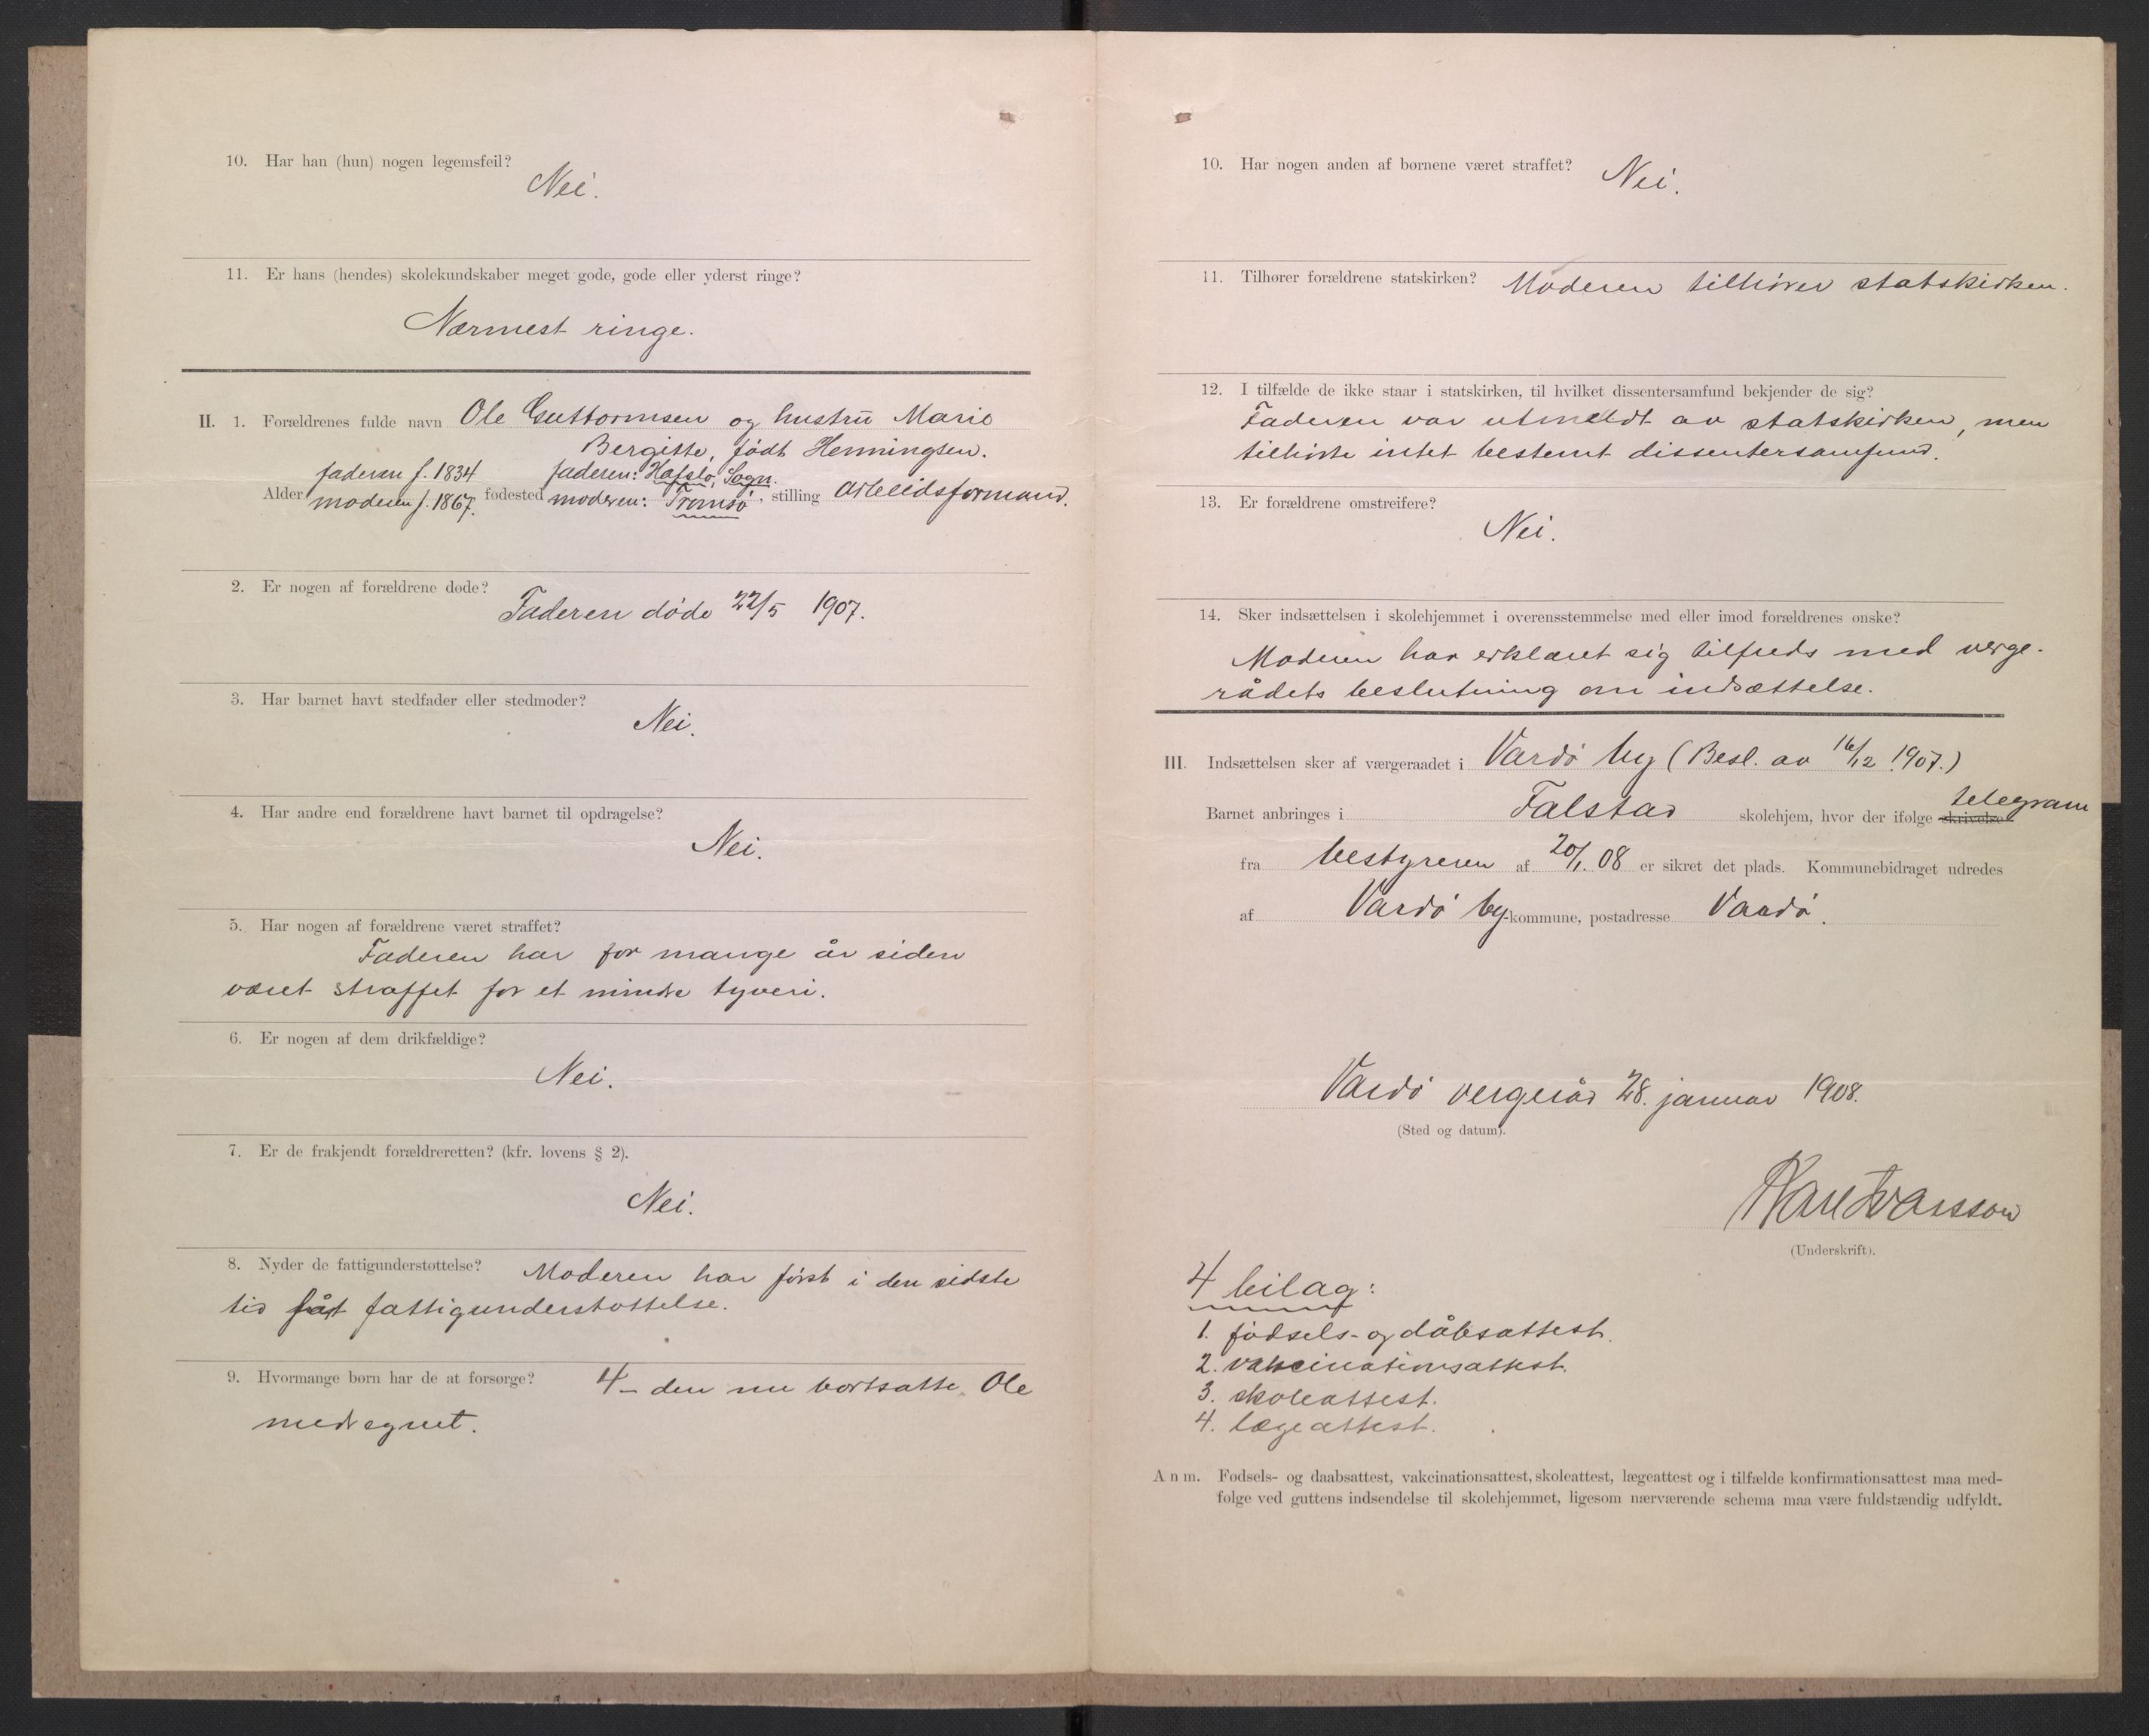 10. Har han (hun) nogen legemsfeil?
Nei.
11. Er hans (hendes) skolekundskaber meget gode, gode eller yderst ringe?
Nærmest ringe.
II. 1. Forældrenes fulde navn Ole Guttormsen og hustru Marie
Bergitte, født Henningsen.
faderen f. 1834 faderen: Hafslo, Sogn.
Alder moderen f. 1867. fødested moderen: Tromsø, stilling arbeidsformand.
2. Er nogen af forældrene døde?
Faderen døde 22/5 1907.
3. Har barnet havt stedfader eller stedmoder?
Nei.
4. Har andre end forældrene havt barnet til opdragelse?
Nei.
5. Har nogen af forældrene været straffet?
Faderen har for mange år siden
været straffet for et mindre tyveri.
6. Er nogen af dem drikfældige?
Nei.
7. Er de frakjendt forældreretten? (kfr. lovens § 2).
Nei.
8. Nyder de fattigunderstøttelse? Moderen har først i den sidste
tid fåt fattigunderstøttelse.
9. Hvormange børn har de at forsørge? 4 – den nu bortsatte Ole
medregnet.
10. Har nogen anden af børnene været straffet? Nei.
11. Tilhører forældrene statskirken? Moderen tilhører statskirken.
12. I tilfælde de ikke staar i statskirken, til hvilket dissentersamfund bekjender de sig?
Faderen var utmeldt av statskirken, men
tilhørte intet bestemt dissentersamfund.
13. Er forældrene omstreifere?
Nei.
14. Sker indsættelsen i skolehjemmet i overensstemmelse med eller imod forældrenes ønske?
Moderen har erklæret sig tilfreds med verge-
rådets beslutning om indsættelse.
III. Indsættelsen sker af værgeraadet i Vardø by (Besl. av 16/12 1907.)
telegram
Barnet anbringes i Falstad skolehjem, hvor der ifølge skrivelse
fra bestyreren af 20/1. 08 er sikret det plads. Kommunebidraget udredes
af Vardø by-kommune, postadresse Vardø.
Vardø vergeråd 28. januar 1908.
(Sted og datum).
(Underskrift).
4 bilag:
1. fødsels- og dåbsattest.
2. vakcinationsattest.
3. skoleattest.
4. lægeattest.
Anm. Fødsels- og daabsattest, vakcinationsattest, skoleattest, lægeattest og i tilfælde konfirmationsattest maa med-
følge ved guttens indsendelse til skolehjemmet, ligesom nærværende schema maa være fuldstændig udfyldt.